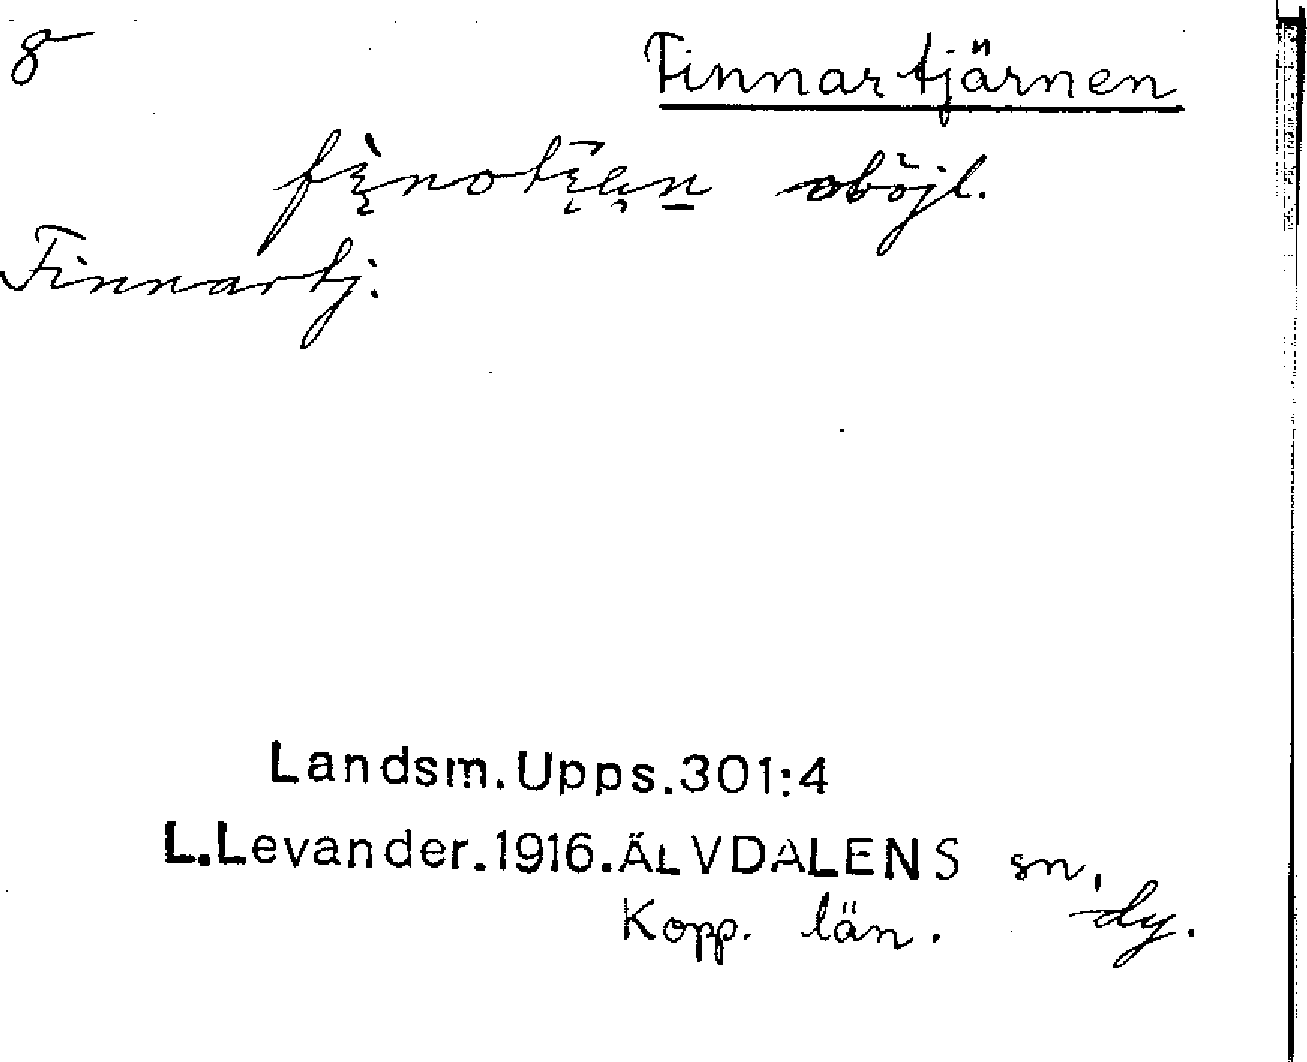 8 Finnartjärnen
oböjl.
Finnartj.
Landsm. Upps. 301:4
L. Levander. 1916. ÄLVDALENS sn,
Kopp. län. dy.